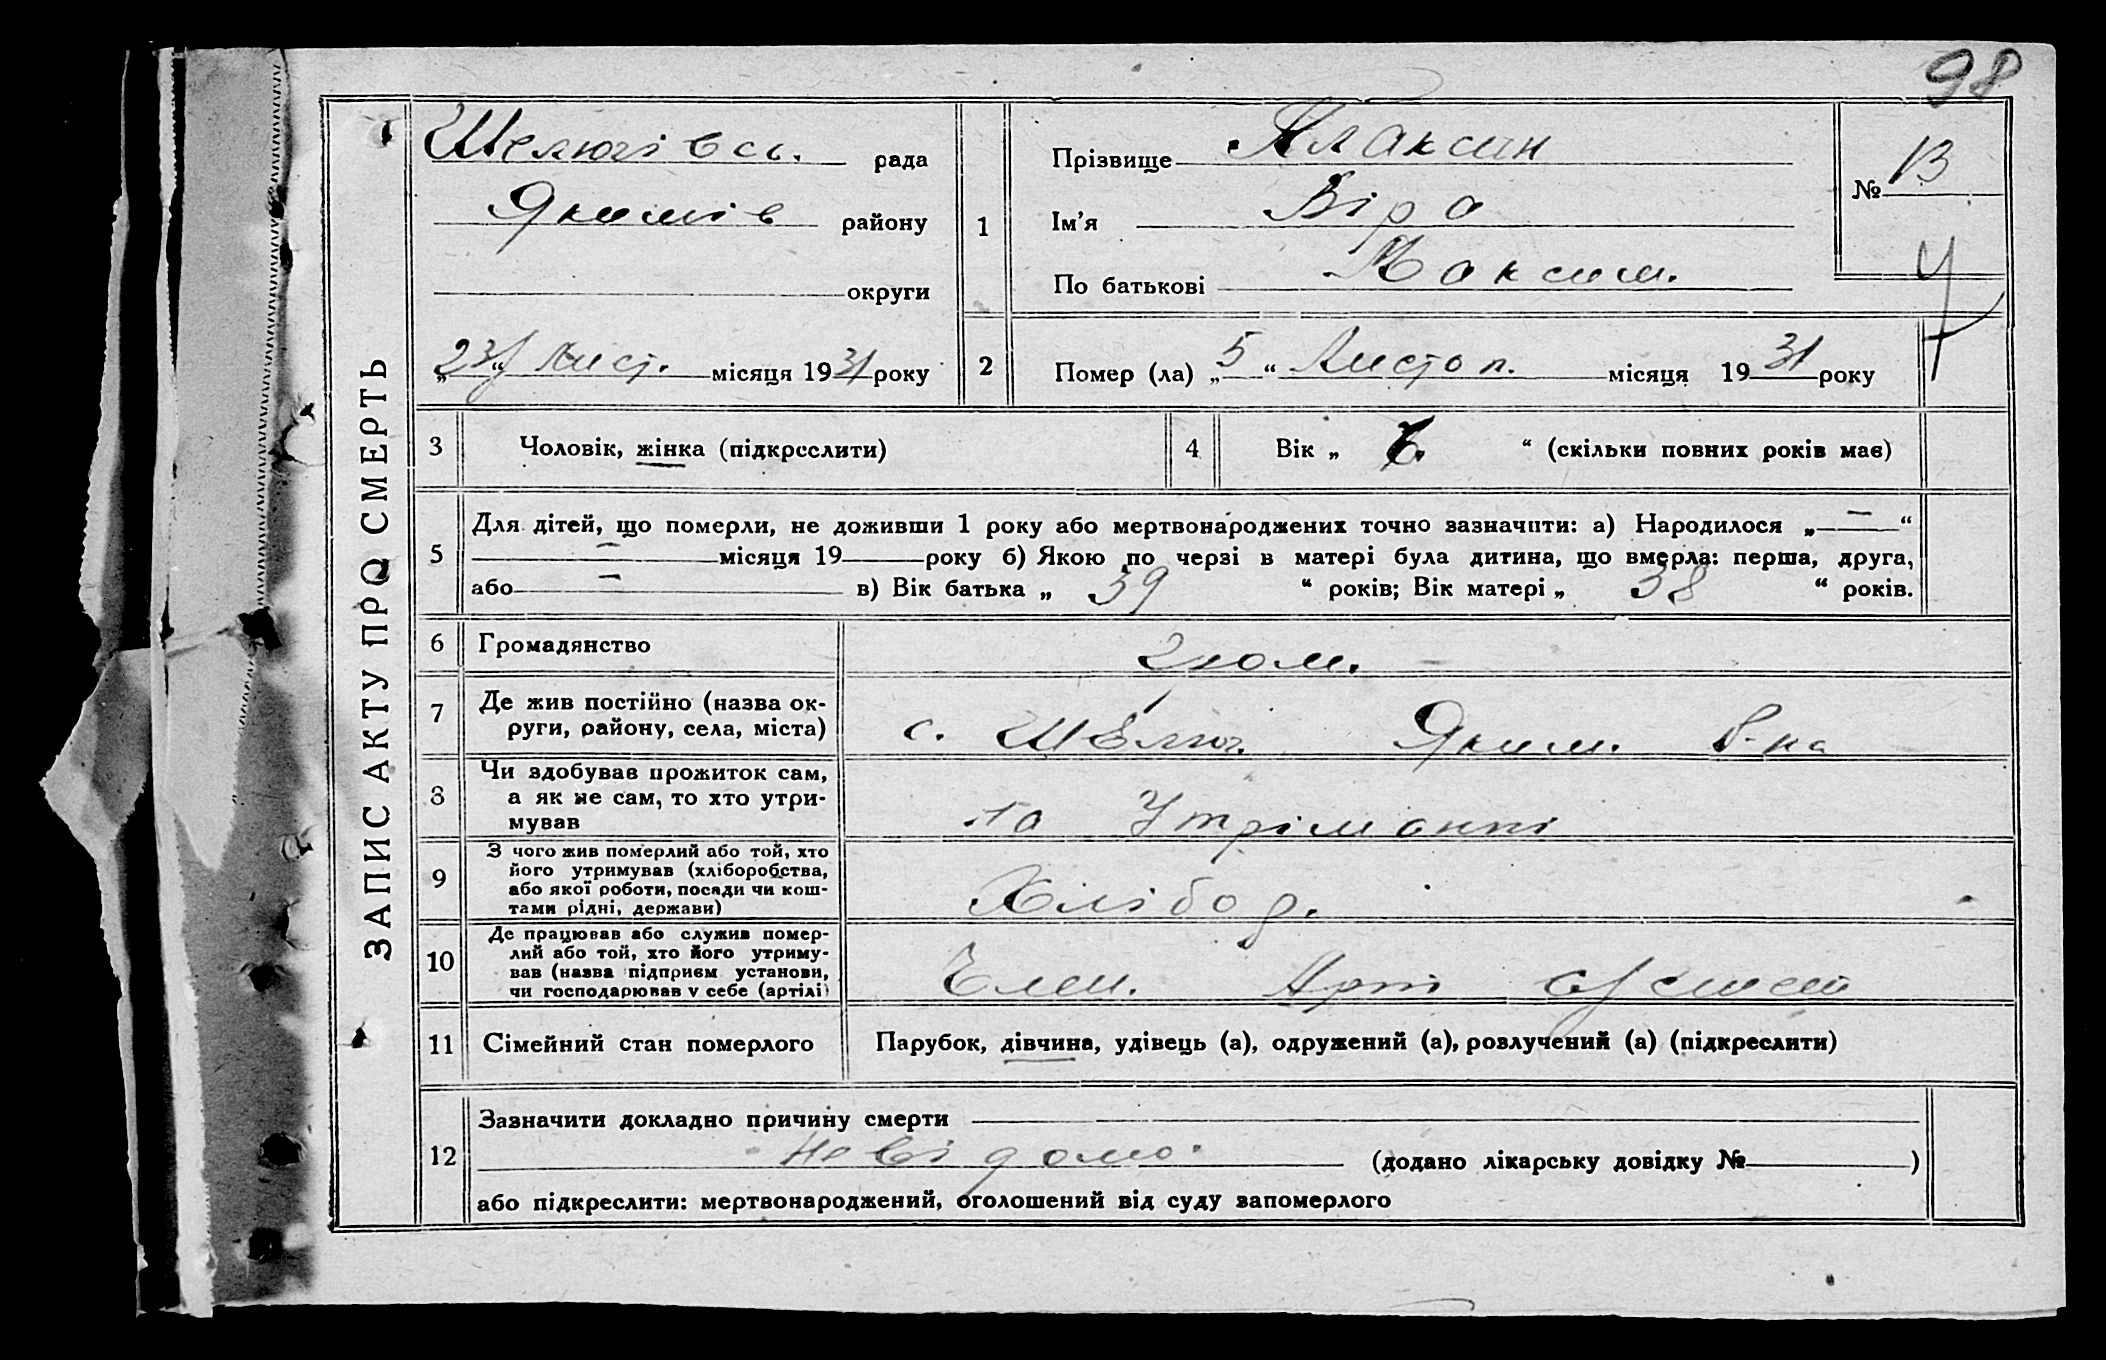 98
ЗАПИС АКТУ ПРО СМЕРТЬ
Шелюгівсь. рада
Якимів району
округи
„23“ лист. місяця 1931 року
1
Прізвище Алаксин
Ім'я Віра
По батькові Максим.
№ 13
2
Помер (ла) „5“ Листоп. місяця 1931 року
3 Чоловік, жінка (підкреслити)
4 Вік „ “ (скільки повних років має)
5 Для дітей, що померли, не доживши 1 року або мертвонароджених точно зазначити: а) Народилося „—“
— місяця 19 року б) Якою по черзі в матері була дитина, що вмерла: перша, друга,
або — в) Вік батька „ 39 “ років; Вік матері „ 38 “ років.
6 Громадянство гром.
7 Де жив постійно (назва ок-
руги, району, села, міста) с. Шелюг. Яким. р-на
8 Чи здобував прожиток сам,
а як не сам, то хто утри-
мував на Утріманні
9 З чого жив померлий або той, хто
його утримував (хліборобства,
або якої роботи, посади чи кош-
тами рідні, держави) Хлібор.
10 Де працював або служив помер-
лий або той, хто його утриму-
вав (назва підприєм установи,
чи господарював у себе (артілі) Член. Арті
11 Сімейний стан померлого Парубок, дівчина, удівець (а), одружений (а), розлучений (а) (підкреслити)
12 Зазначити докладно причину смерти
невідомо. (додано лікарську довідку № )
або підкреслити: мертвонароджений, оголошений від суду запомерлого